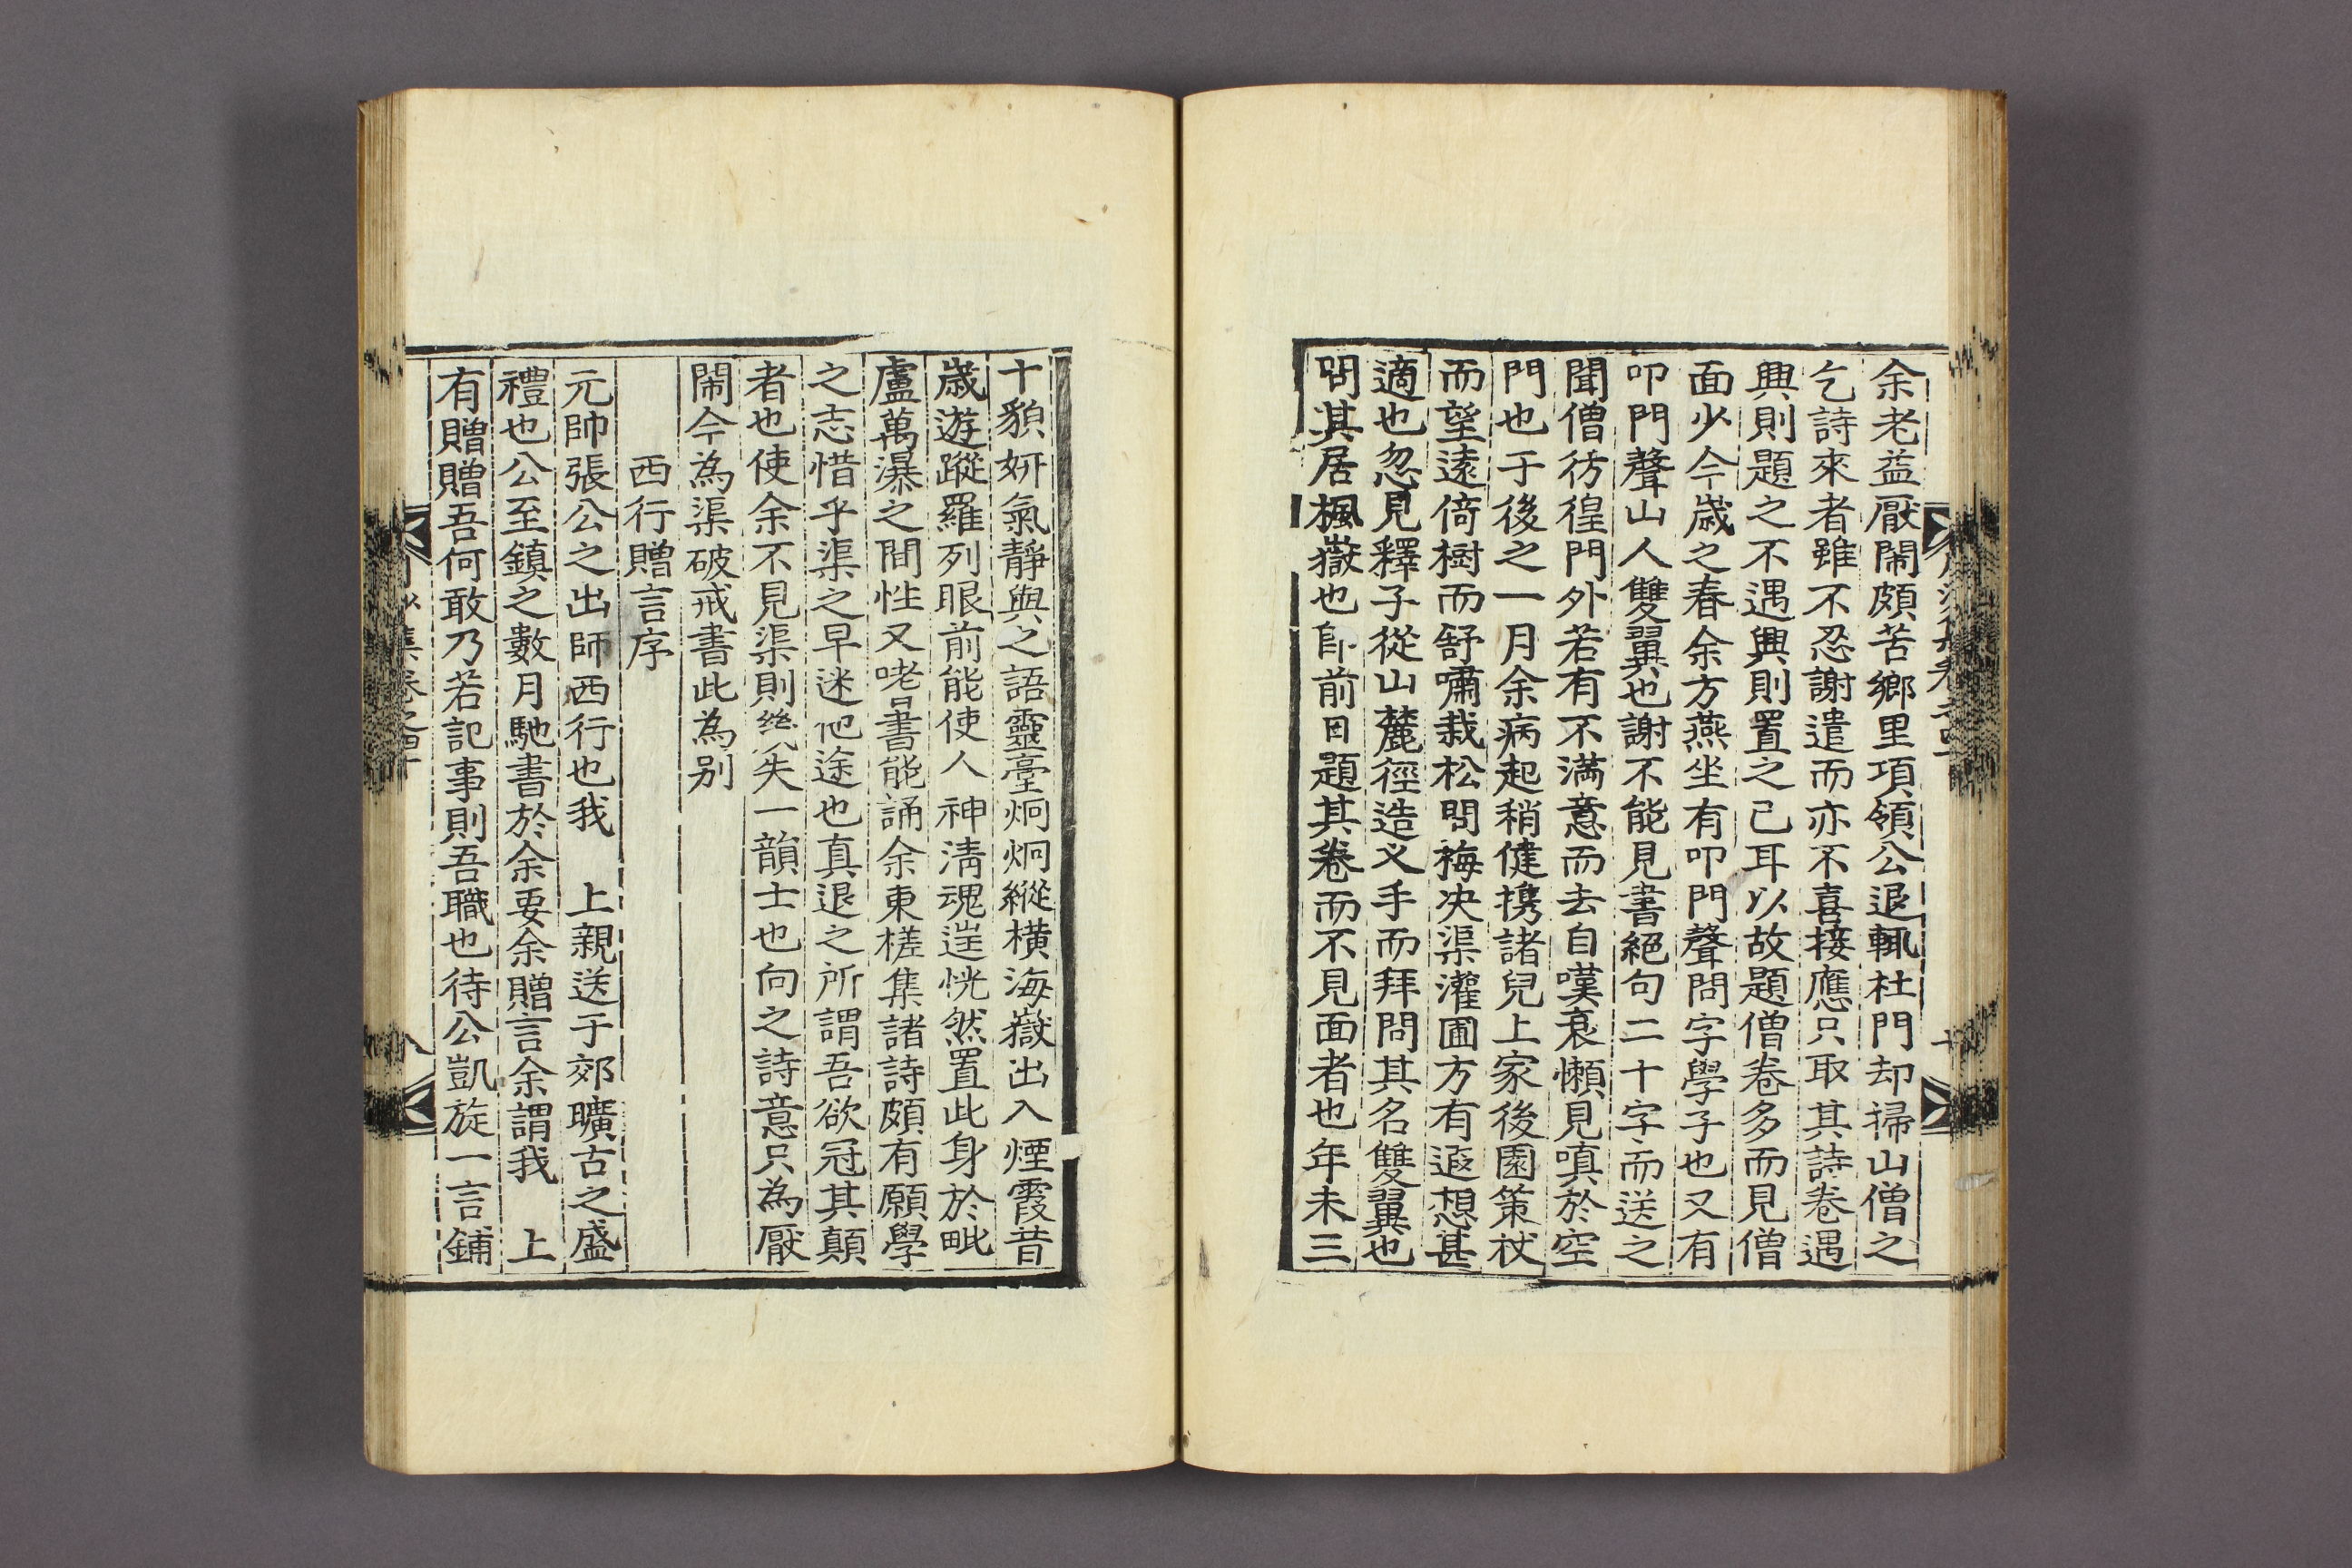 余老益厭閙頗苦鄉里項領公退輒杜門却掃山僧之
乞詩來者雖不忍謝遣而亦不喜接應只取其詩卷遇
興則題之不遇興則置之已耳以故題僧卷多而見僧
面少今歲之春余方燕坐有叩門聲問字學子也又有
叩門聲山人雙翼也謝不能見書絕句二十字而送之
聞僧彷徨門外若有不滿意而去自嘆衰懶見嗔於空
門也于後之一月余病起稍健携諸兒上家後園策杖
而望遠倚樹而舒嘯栽松問梅决渠灌圃方有遐想甚
適也忽見釋子從山麓徑造义手而拜問其名雙翼也
問其居楓嶽也卽前日題其卷而不見面者也年未三
十貌妍氣靜與之語靈臺炯炯縱橫海嶽出入煙霞昔
歲遊蹤羅列眼前能使人神淸魂逞恍然置此身於毗
盧萬瀑之間性又咾書能誦余東槎集諸詩頗有願學
之志惜乎渠之早迷他途也真退之所謂吾欲冠其顛
者也使余不見渠則幾失一韻士也向之詩意只為厭
閙今為渠破戒書此為别
西行贈言序
元帥張公之出師西行也我 上親送于郊曠古之盛
禮也公至鎭之數月馳書於余要余贈言余謂我 上
有贈贈吾何敢乃若記事則吾職也待公凱旋一言鋪